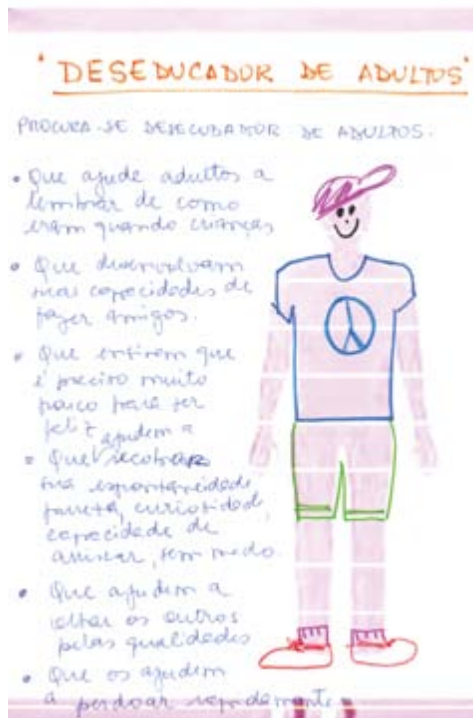 "DESEDUCADOR DE ADULTOS"
PROCURA-SE DESEDUCADOR DE ADULTOS.
• Que ajude adultos a
lembrar de como
eram quando crianças
• Que desenvolvam
suas capacidades de
fazer amigos.
• Que ensinem que
é preciso muito
pouco para ser
feliz
• Que ajudem a recobrar
sua espontaneidade
curiosidade,
capacidade de
arriscar, sem medo
• Que ajudem a
olhar os outros
pelas qualidades
• Que os ajudem
a perdoar rapidamente